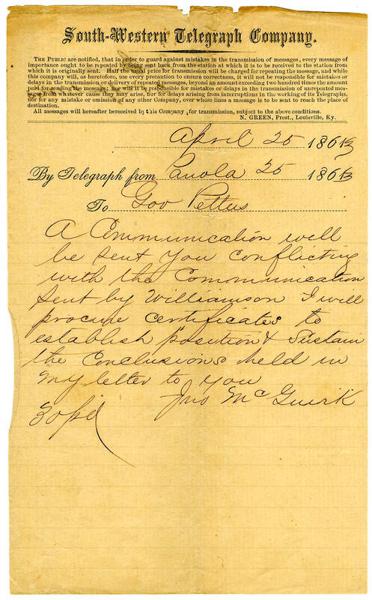 South-Western Telegraph Company.
THE PUBLIC are notified, that in order to guard against mistakes in the transmission of messages, every message
of importance ought to be repeated by being sent back from the station at which it is to be received to the station from
which it is originally sent. Half the usual price for transmission will be charged for repeating the message, and while
this company will, as heretofore, use every precaution to ensure correctness, it will not be responsible for mistakes or
delays in the transmission or delivery of repeated messages, beyond an amount exceeding two hundred times the amount
paid for sending the message; nor will it be responsible for mistakes or delays in the transmission of unrepeated mes-
sages from whatever cause they may arise, nor for delays arising from interruptions in the working of its Telegraphs,
nor for any mistake or omission of any other Company, over whose lines a message is to be sent to reach the place of
destination.
All messages will hereafter be received by this Company for transmission, subject to the above conditions.
N. GREEN, Prest., Louisville, Ky.
April 25 1863
By Telegraph from Panola 25 1863
To Gov Pettus
A Communication will
be sent you conflicting
with the Communication
sent by Williamson I will
procure certificates to
establish position & sustain
the Conclusions held in
my letter to you
Jno McGuirk
30 pd